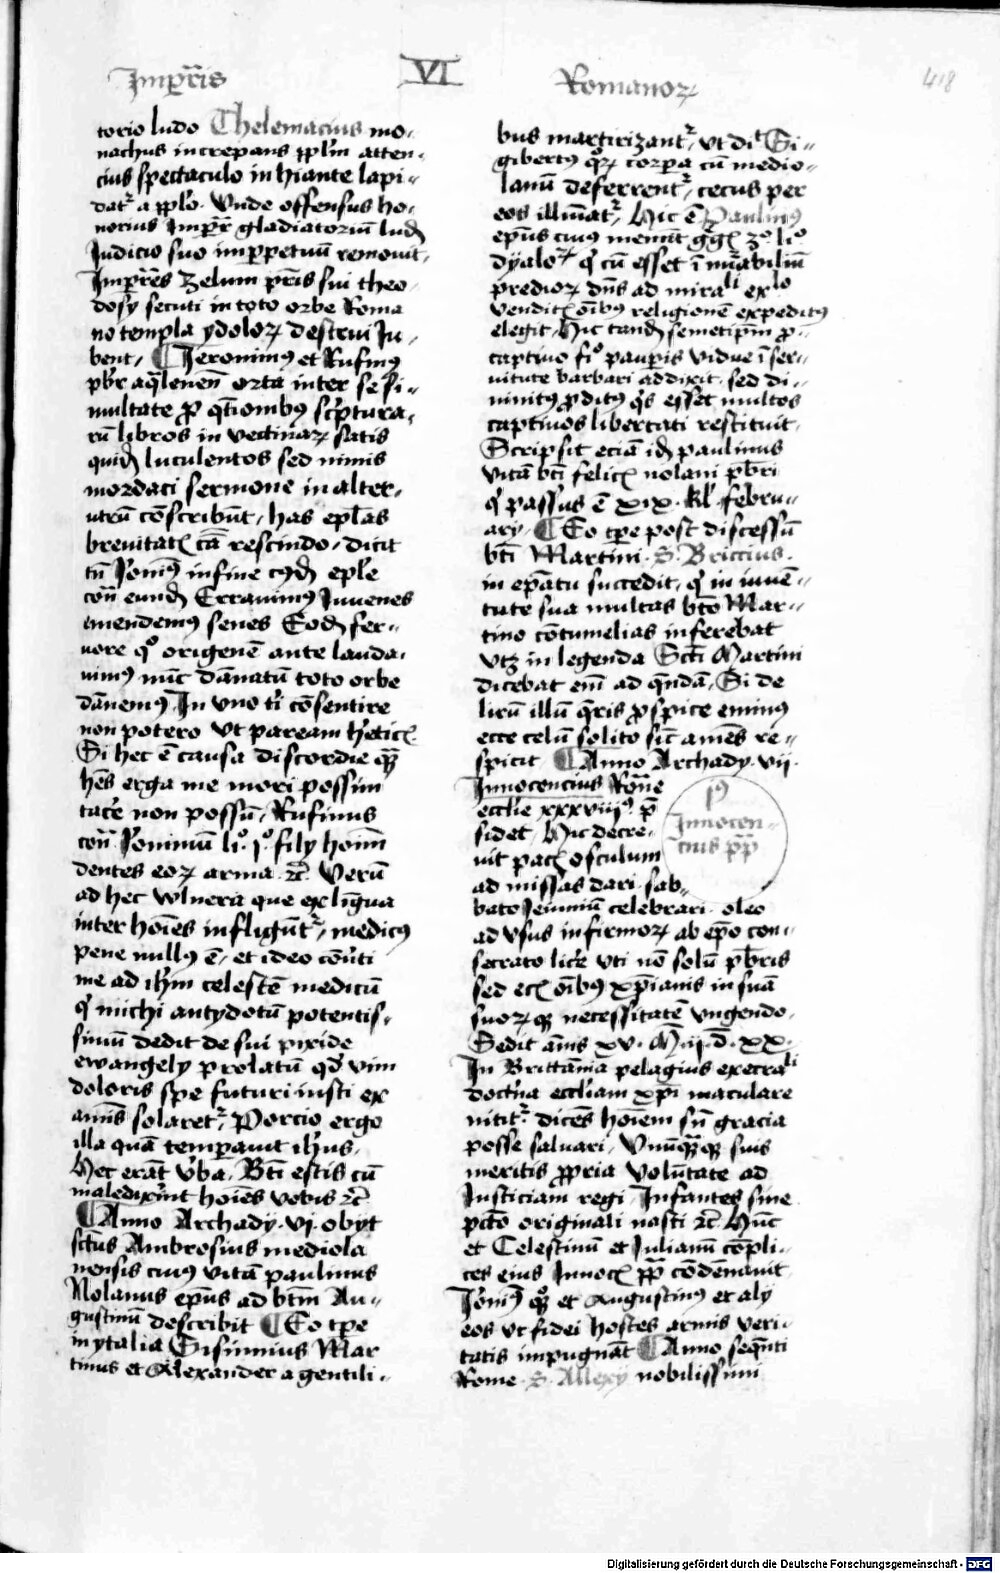 Imꝑr̄is VI Romanoꝝ 418
torio ludo Thelemacius mo-
nachus increpans pplm̄ atten-
cius spectaculo inhiante lapi-
dat᷑ a pplo. Vnde offensus ho-
norius Imꝑr̄ gladiatoriū ludū
Iudicio suo imꝑpetuū remouit.
Imꝑr̄es zelum pr̄is sui theo-
dosy secuti in toto orbe Roma
no templa ydoloꝝ destrui Iu-
bent. Ieronimꝰ et Rufinꝰ
pb̄r aqͥleneñ orta inter se si-
multate ꝓ qōnibus scͥptura-
rū libros in vectinaꝝ satis
quidē luculentos sed nimis
mordaci sermone in alter-
utrū cōscribūt, has epl̄as
breuitatꝭ cā rescindo. dicit
tn̄ Ieronimꝰ in fine cꝰdē epl̄e
con̄ eundē Erauimꝰ Iuuenes
emendemꝰ senes Eodē fer-
uore qͦ origenē ante lauda-
uimꝰ nūc dānatū toto orbe
dānemꝰ. In uno tī cōsentire
non potero vt paream heͤticꝭ
Si hec ē causa discordie
hēs erga me mori possum
tace non possū. Rufinus
con̄ Ieronimū li. j. fily hoīm
dentes eoꝝ arma ⁊c̄. Verū
ad hec wlnera que ex lingua
inter hoīes infligūt᷑ medicꝰ
pene nullꝰ ē, et ideo cōuerti
me ad ih̄m celestē medicū
qͥ michi antydotū potentis-
simū dedit de sui pixide
ewangely prolatū qd̄ vim
doloris spe futuri iusti ex
aīs solaret᷑. Porcio ergo
illa quā temperauit ih̄us.
Hec erāt v̄ba. Bt̄i estis cū
maledixerint hoīes vobis ⁊c̄
Anno Archady vj. obyt
sctūs Ambrosius mediola
nensis cuiꝰ vitā paulinus
Nolanus ep̄us ad bt̄m Au-
gustinū describit Eo tp̄e
in ytalia Sisinnius Mar
tinus et Alexander a gentili-
bus martirizant᷑, vt dīt Si-
gibertꝰ qͦꝝ corꝑa cū medio-
lanū deferrent᷑, cecus per
eos illūiat᷑. Hic ē Paulinꝰ
ep̄us cuiꝰ meminit gͦgꝰ 3º liº
dyaloꝝ qͥ cū esset ī mͥabiliū
prediorꝝ dn̄s ad miraͣli exlo
venditꝭ oībus religionē expeditꝰ
elegit. Hic tandē semetip̄m ꝓ
captiuo fiº pauꝑis vidue ī ser-
uitute barbari addixit. sed di-
uinitꝰ ꝓditꝰ qͥs esset multos
captiuos libertati restituit.
Scripsit eciā idē paulinus
vitā bt̄i felicꝭ nolani pb̄ri
qͥ passus ē xix. kl̄ febru-
ary. Eo tp̄e post discessū
bt̄i Martini S. Briccius
in ep̄atu succedit, qͥ in iuuē-
tute sua multas bt̄o Mar-
tino cōtumelias inferebat
vtꝫ in legenda Sct̄i Martini
dicebat em̄ ad quēdā, Si de
lirū illū qͥris ꝓspice eminꝰ
ecce celū solito sicͭ amēs re-
spicit. Anno Archady. vij.
Innocencius Rōne
eccl̄ie xxxviijꝰ pp̄
sidet. Hic decre-
uit pacꝭ osculum
ad missas dari. sab-
bato Ieiunium celebrari. oleo
ad vsus infirmoꝝ ab ep̄o con-
secrato licēe vti nō solū pb̄ris
sed ecꝭ oībꝰ xp̄ianis in suā
suoꝝqꝫ necessitatē vngendo.
Sedit anīs xv. M. ij. d. xx.
In Brittānia pelagius execraͣli
doctͥna eccl̄iam xp̄i maculare
nitit᷑. dicēs hoīem sn̄ gracia
posse saluari. vnūquēqꝫ suis
meritis ꝓpria volūtate ad
Iusticiam regi. Infantes sine
pct̄o originali nasci ⁊c̄. Hūc
et Celestinū et Iulianū cōpli-
ces eius Innocꝰ pp̄ cōdēnauit.
Ieronimꝰ qͦqꝫ et Augustinꝰ et aly
eos vt fidei hostes armis veri-
tatis impugnāt Anno seqͥnti
Rome S. Allexy nobilissimi
sꝰ
Innocen-
cius pp̄
Digitalisierung gefördert durch die Deutsche Forschungsgemeinschaft - DFG